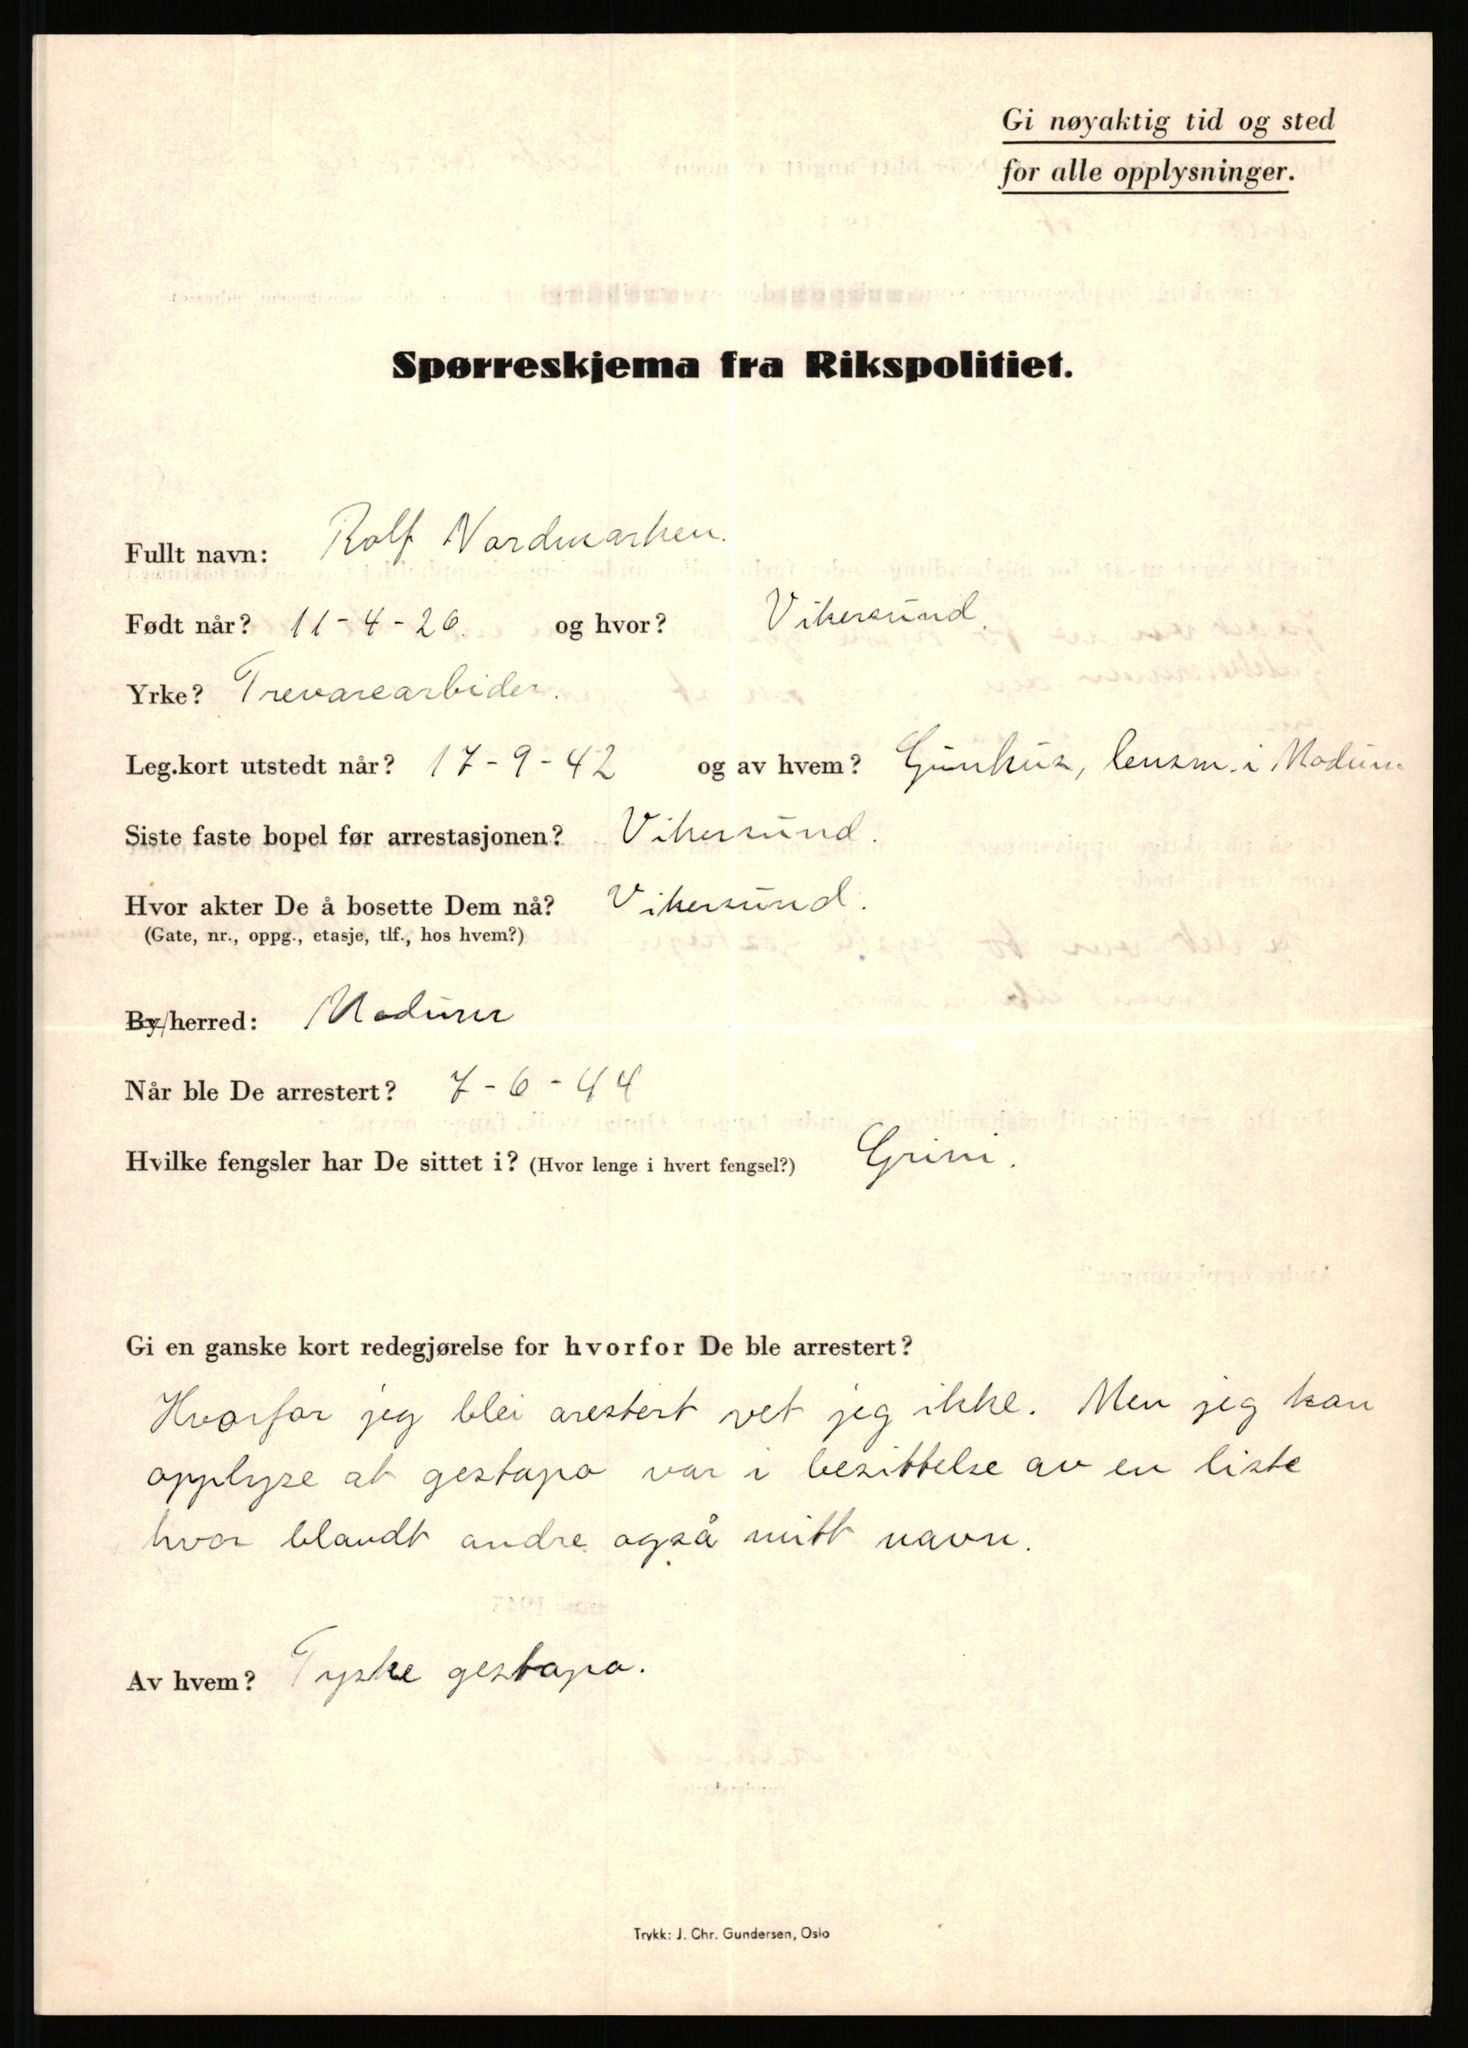 Gi nøyaktig tid og sted
for alle opplysninger.
Spørreskjema fra Rikspolitiet.
Fullt navn: Rolf Nordmarken.
Født når? 11-4-26. og hvor? Vikersund.
Yrke? Trevarearbider.
Leg.kort utstedt når? 17-9-42 og av hvem? Gunhus, lensm. i Modum
Siste faste bopel før arrestasjonen? Vikersund.
Hvor akter De å bosette Dem nå? Vikersund.
(Gate, nr., oppg., etasje, tlf., hos hvem?)
By/herred: Modum
Når ble De arrestert? 7-6-44
Hvilke fengsler har De sittet i? (Hvor lenge i hvert fengsel?) Grini.
Gi en ganske kort redegjørelse for hvorfor De ble arrestert?
Hvorfor jeg blei arestert vet jeg ikke. Men jeg kan
opplyse at gestapo var i besittelse av en liste
hvor blandt andre også mitt navn.
Av hvem? Tyske gestapo.
Trykk: J. Chr. Gundersen, Oslo